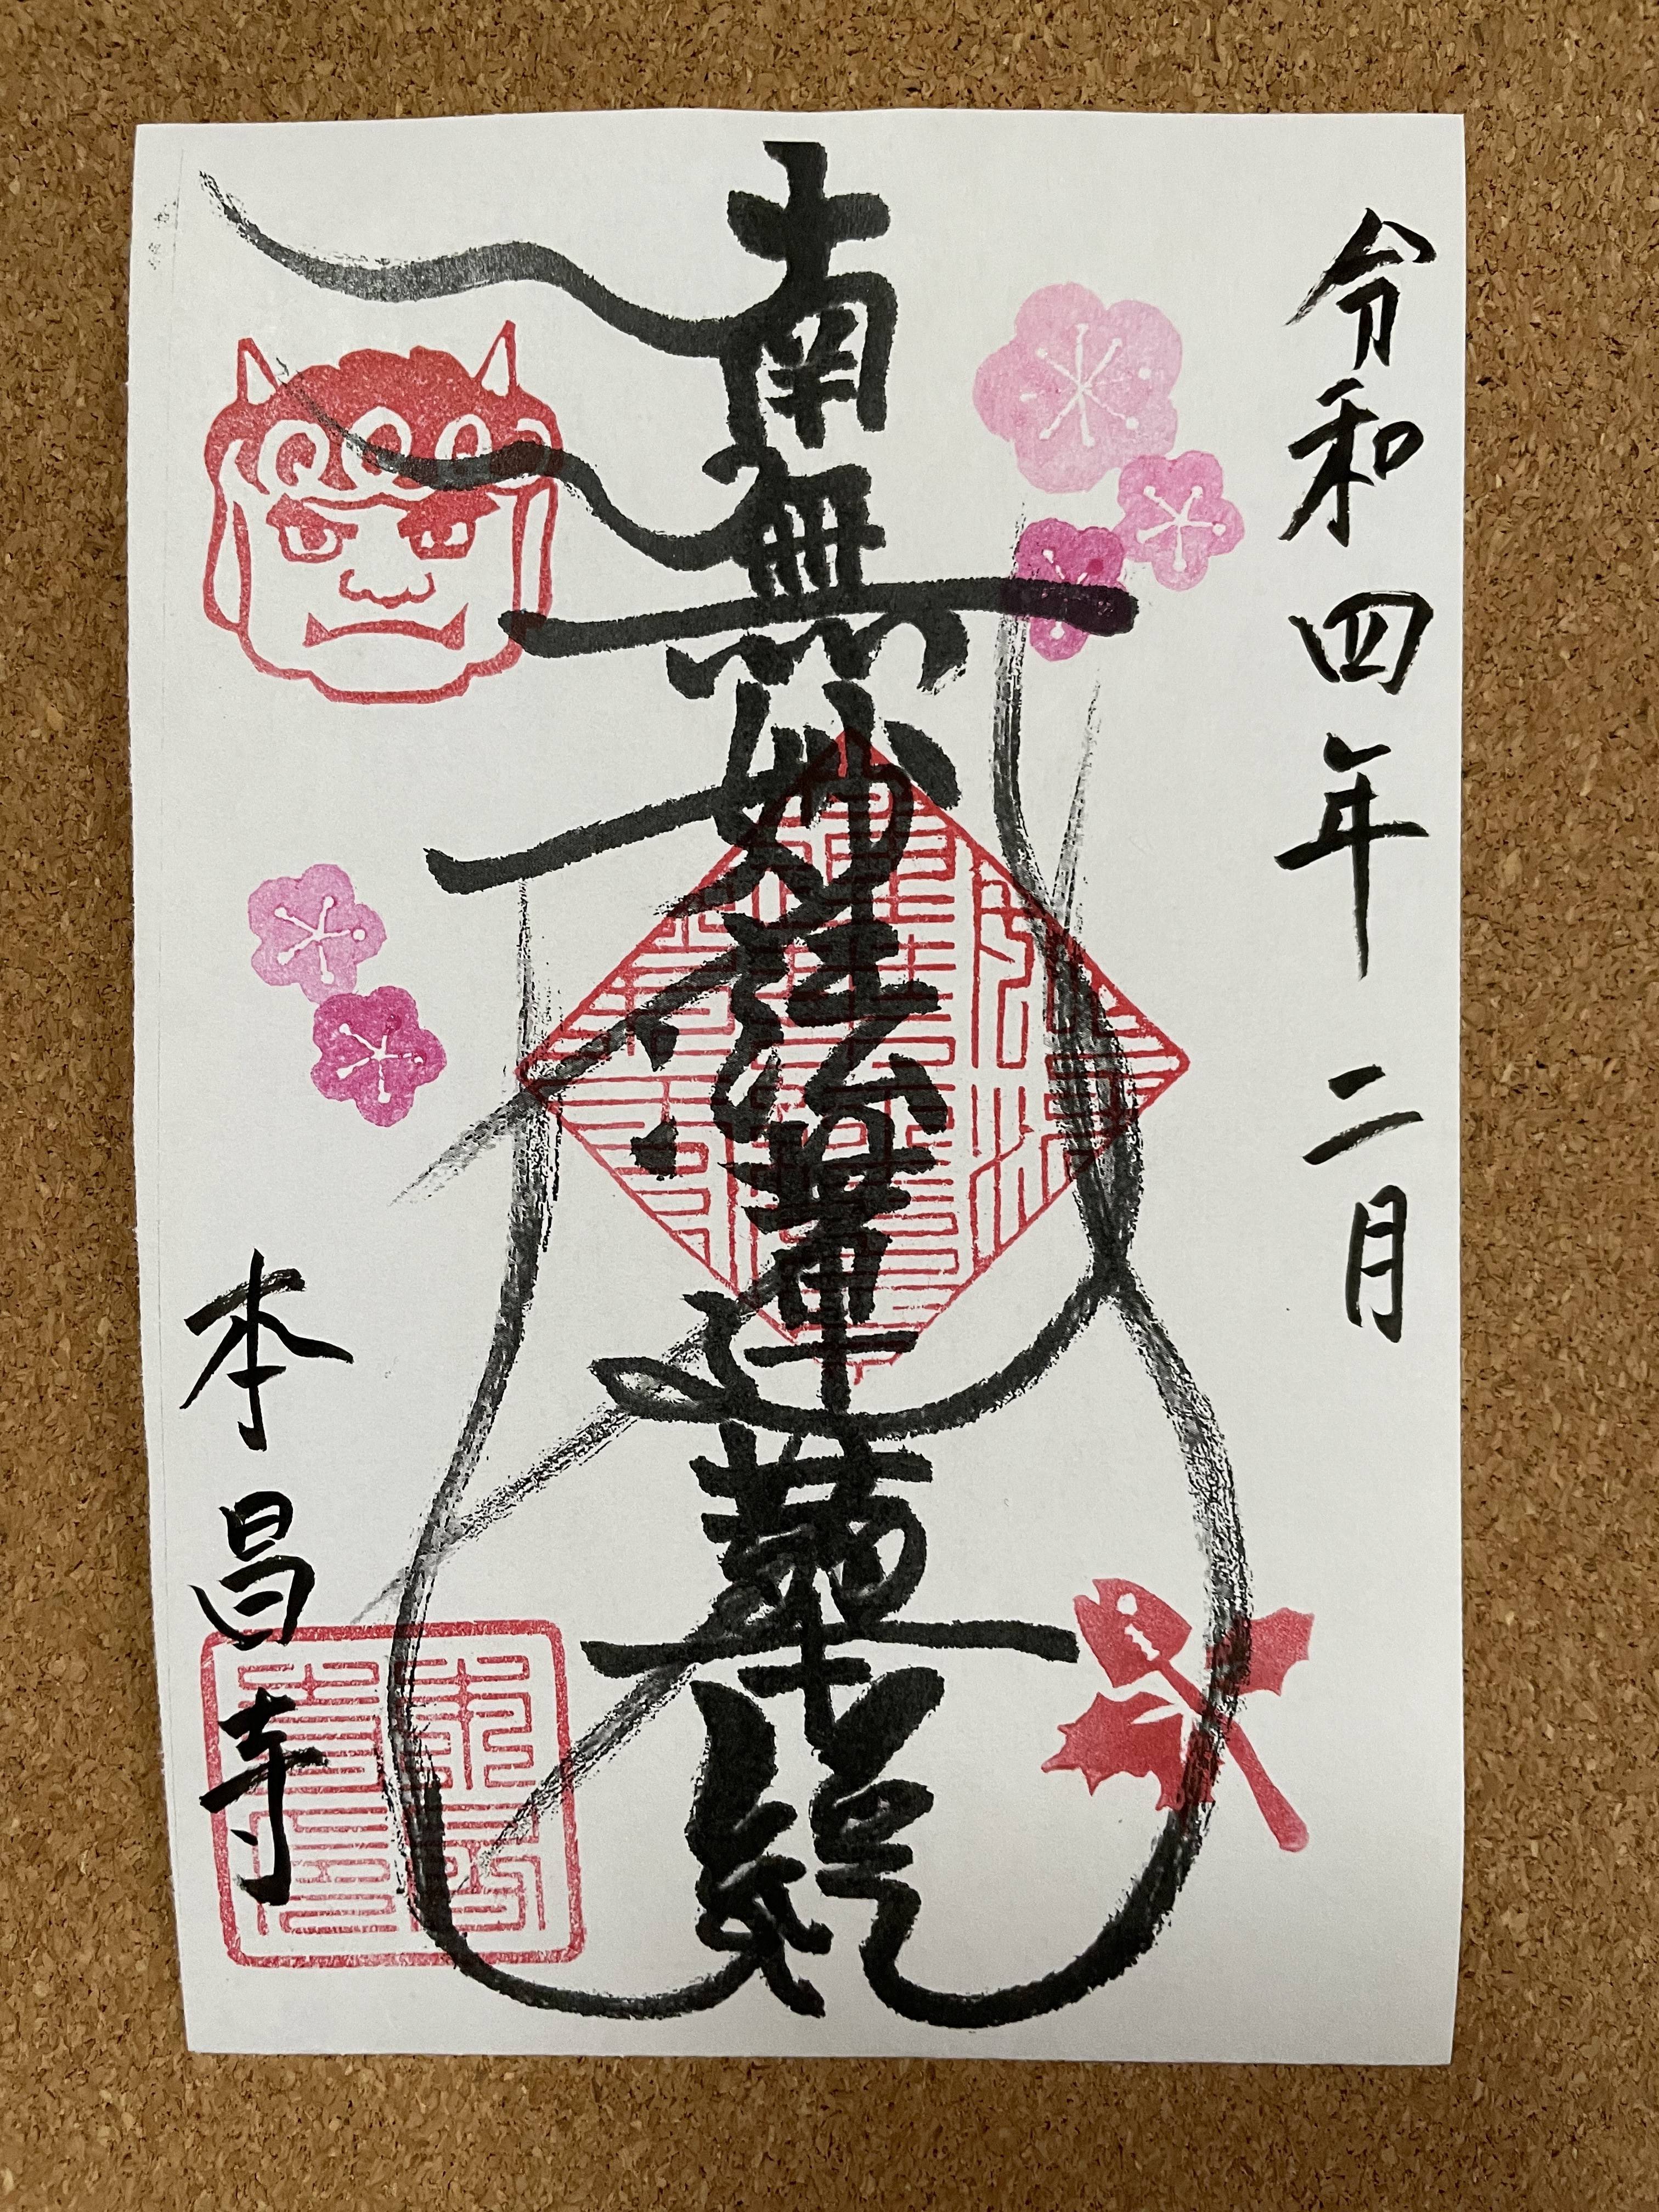 令和四年二月
南無妙法蓮華経
本昌寺